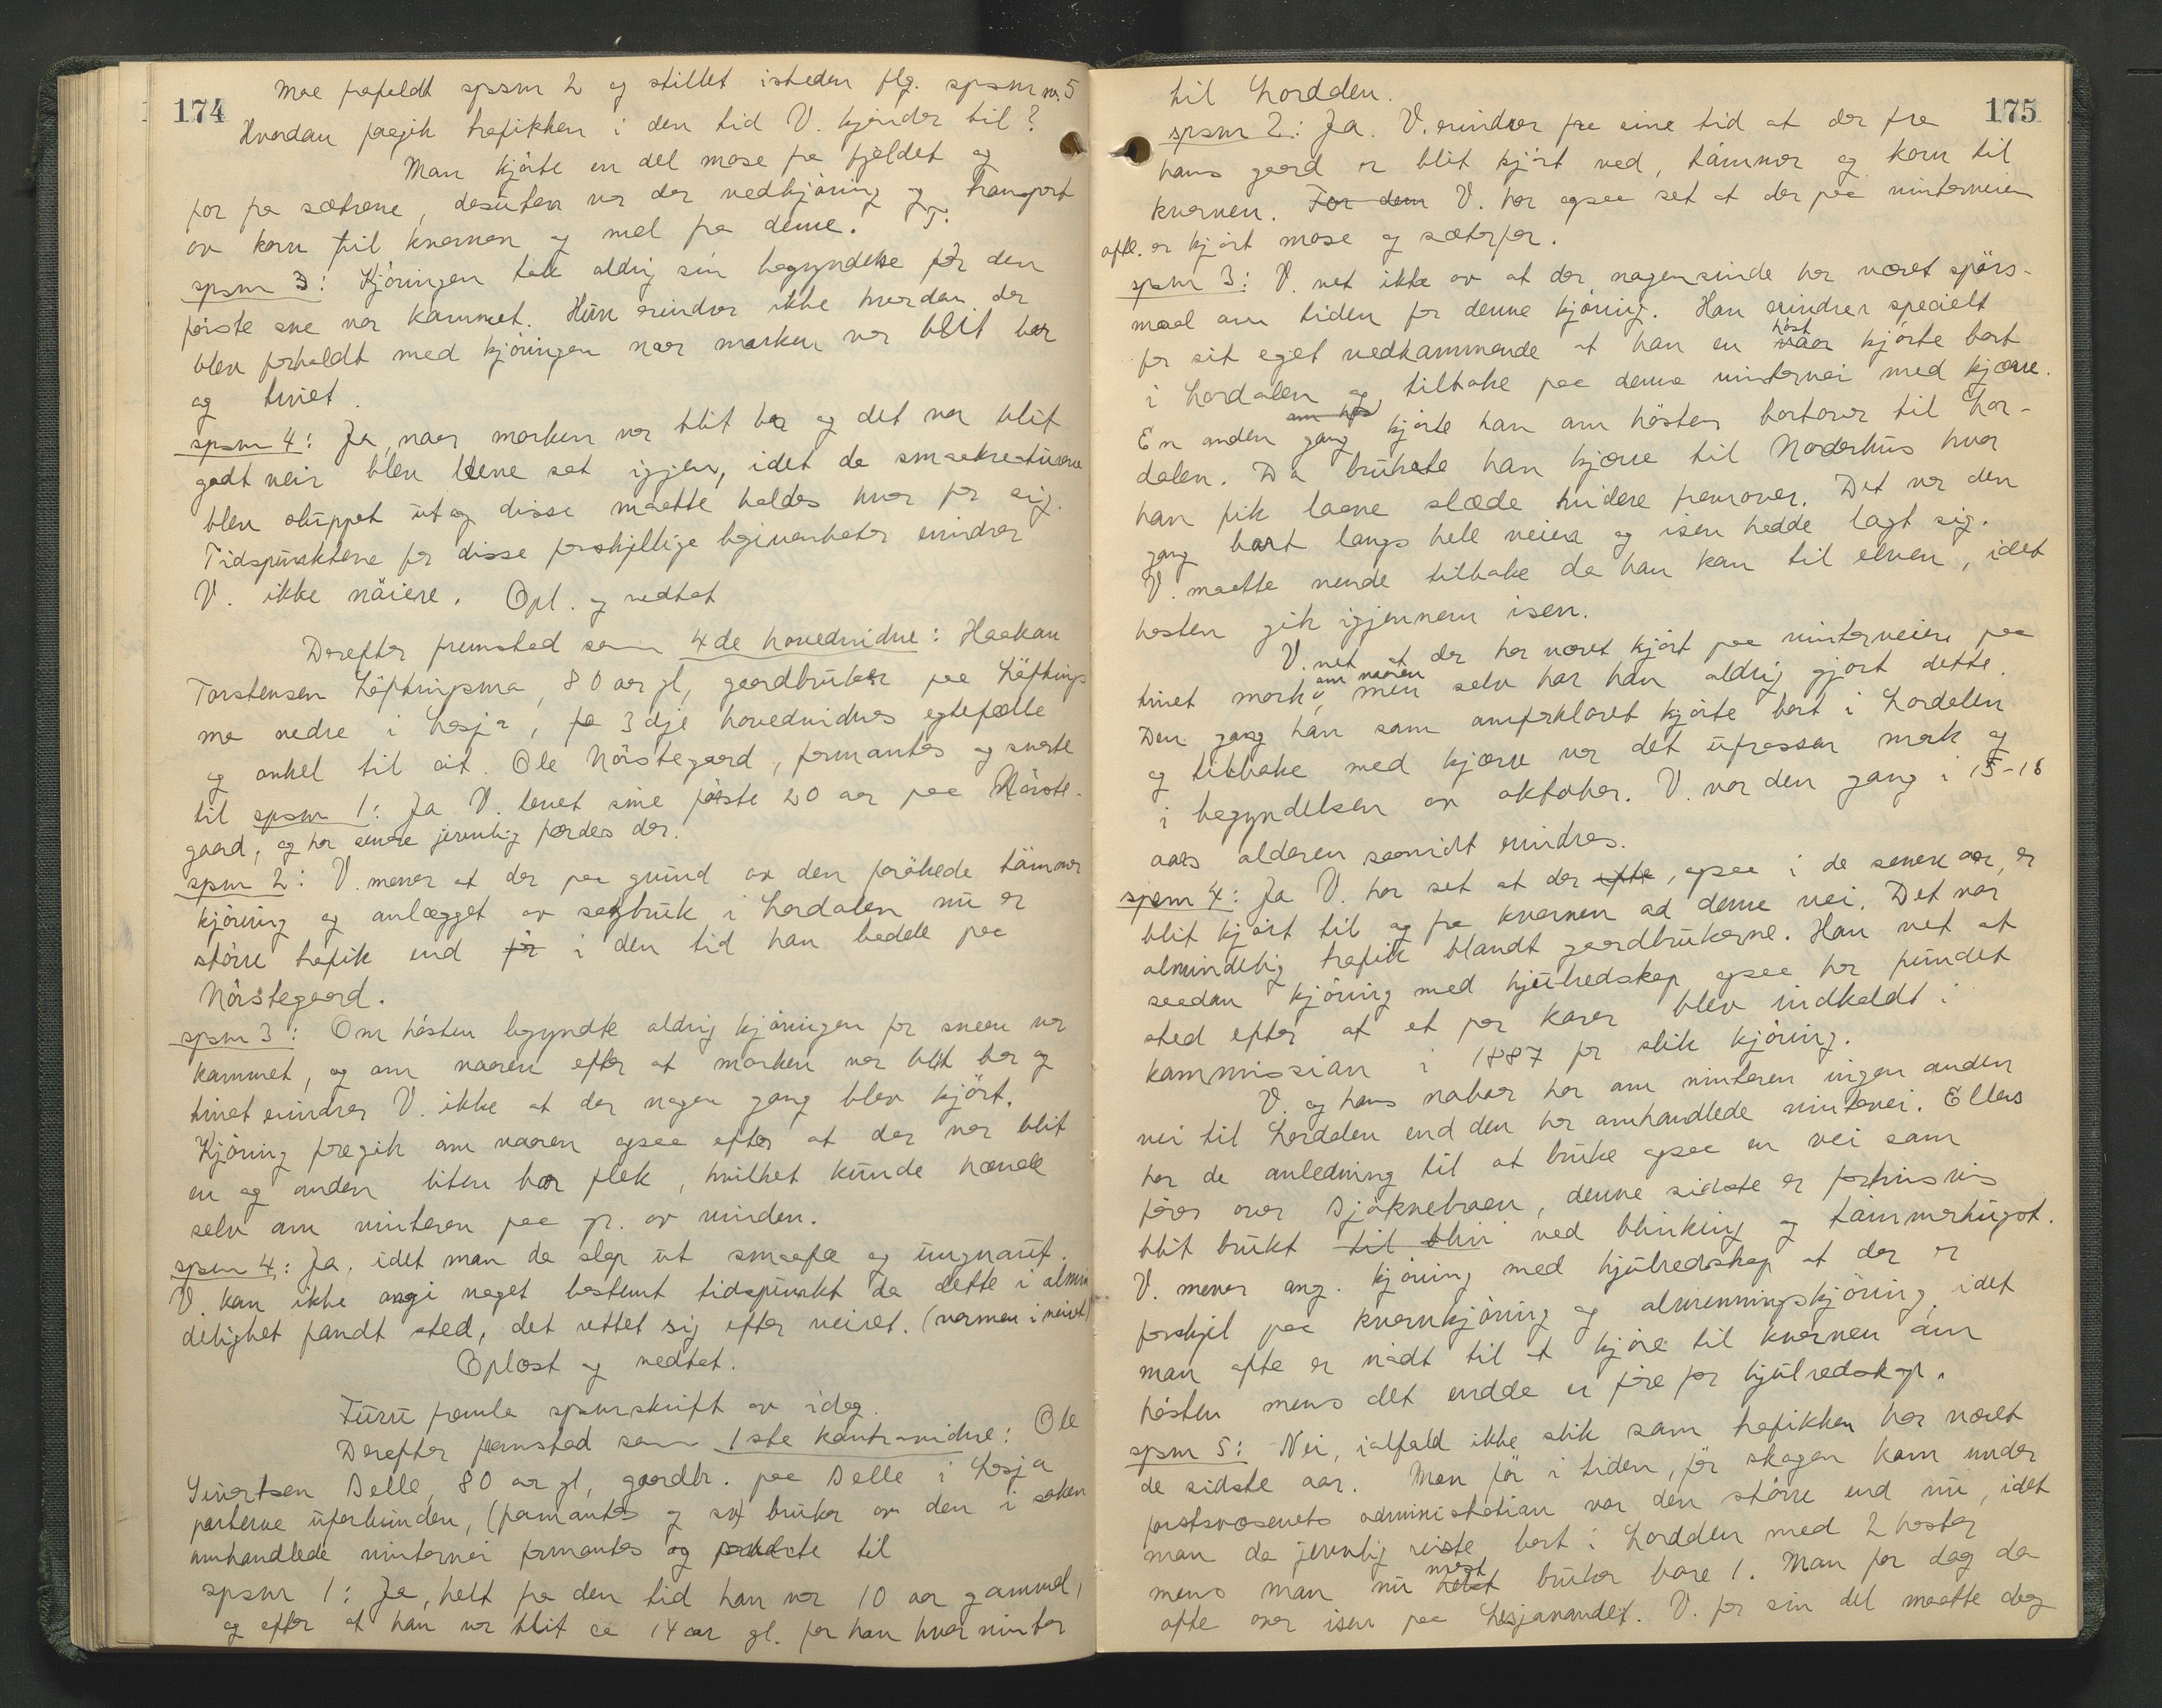 174
Moe frafaldt spssm 2 og stillet isteden flg. spsm nr. 5
Hvordan foregik trafikken i den tid V. kjender til?
Man kjörte en del mose fra fjeldet og
for fra sætrene, desuten var der vedkjöring og transport
av korn til kvernen og mel fra denne.
spsm 3: Kjöringen tok aldrig sin begyndelse för den
förste sne var kommet. Hun erindrer ikke hvordan der
blev forholdt med kjöringen naar marken var blit bar
og tinet.
spsm 4: Ja, naar marken var blit bar og det var blit
godt veir blev leene sat igjen, idet da smaakreaturene
blev sluppet ut og disse maatte holdes hver for sig.
Tidspunktene for disse forskjellige begivenheter erindrer
V. ikke nöiere. Opl. og vedtat
Derefter fremstod som 4de hovedvidne: Haakon
Torstensen Löftingsmo, 80 aar gl, gaardbruker paa Löftings
mo nedre i Lesja, fra 3dje hovedvidnes egtefælle
og onkel til cit. Ole Nörstegaard, formantes og svarte
til spsm 1: Ja V. levet sine förste 20 aar paa Nörste-
gaard, og har senere jevnlig færdes der.
spsm 2: V. mener at der paa grund av den forökede tömmer
kjöring og anlægget av sagbruk i Lordalen nu er
större trafik end för i den tid han bodde paa
Nörstegaard.
spsm 3: Om hösten begyndte aldrig kjöringen för sneen var
kommet, og om vaaren efter at marken var blit bar og
tinet erindrer V. ikke at der nogen gang blev kjört.
Kjöring foregik om vaaren ogsaa efter at der var blit
en og anden liten bar flek, hvilket kunde hænde
selv om vinteren paa gr. av vinden.
spsm 4: Ja, idet man da slap ut smaafæ og ungnaut.
V. kan ikke angi noget bestemt tidspunkt da dette i almin
delighet fandt sted, det rettet sig efter veiret. (varmen i veiret)
Oplæst og vedtat.
Furu fremla spsmskrift av idag.
Derefter fremstod som 1ste kontravidne: Ole
Sivertsen Selle, 80 aar gl, gaardbr. paa Selle i Lesja
parterne uforbunden, (formantes og sv) bruker av den i saken
omhandlede vintervei formantes og forklarte til
spsm 1: Ja, helt fra den tid han var 10 aar gammel,
og efter at han var blit ca 14 aar gl. for han hver vinter
175
til Lordalen.
spsm 2: Ja. V. erindrer fra sine tid at der fra
hans gaard er blit kjört ved, tömmer og korn til
kvernen. For dem V. har ogsaa set at der paa vinterveien
ofte. er kjört mose og sæterfor.
spsm 3: V. vet ikke av at der nogensinde har været spörs-
maal om tiden for denne kjöring. Han erindrer specielt
for sit eget vedkommende at han en vaar höst kjörte bort
i Lordalen og tilbake paa denne vintervei med kjærre.
En anden gang kjörte han om hösten bortover til Lor-
dalen. Da brukte han kjærre til Noderhus hvor
han fik laane slæde videre fremover. Det var den
gang bart langs hele veien og isen hadde lagt sig.
V. maatte vende tilbake da han kom til elven, idet
hesten gik igjennem isen.
V. vet at der har været kjört paa vinterveien paa
tinet mark om vaaren, men selv har han aldrig gjort dette.
Den gang han som omforklaret kjörte bort i Lordalen
og tilbake med kjærre var det ufrossen mark og
i begyndelsen av oktober. V. var den gang i 15-16
aars alderen saavidt erindres.
spsm 4: Ja V. har set at der ofte, ogsaa i de senere aar, er
blit kjört til og fra kvernen ad denne vei. Det var
almindelig trafik blandt gaardbrukerne. Han vet at
saadan kjöring med hjulredskap ogsaa har fundet
sted efter at et par karer blev indkaldt i
kommission i 1887 for slik kjöring.
V. og hans naboer har om vinteren ingen anden
vei til Lordalen end den her omhandlede vintervei. Ellers
har de anledning til at bruke ogsaa en vei som
förer over Sjöknebroen, denne sidste er fortrinsvis
blit brukt til blin ved blinking og tömmerhugst.
V. mener ang. kjöring med hjulredskap at der er
forskjel paa kvernkjöring og almenningskjöring, idet
man ofte er nödt til at kjöre til kvernen om
hösten mens det endda er före for hjulredskap.
spsm 5: Nei, ialfald ikke slik som trafikken har været
de sidste aar. Men för i tiden, för skogen kom under
forstvæsenets administration var den större end nu, idet
man da jevnlig reiste bort i Lordalen med 2 hester
mens man nu helst mest bruker bare 1. Man for dog da
ofte over isen paa Lesjavandet. V. for sin del maatte dog